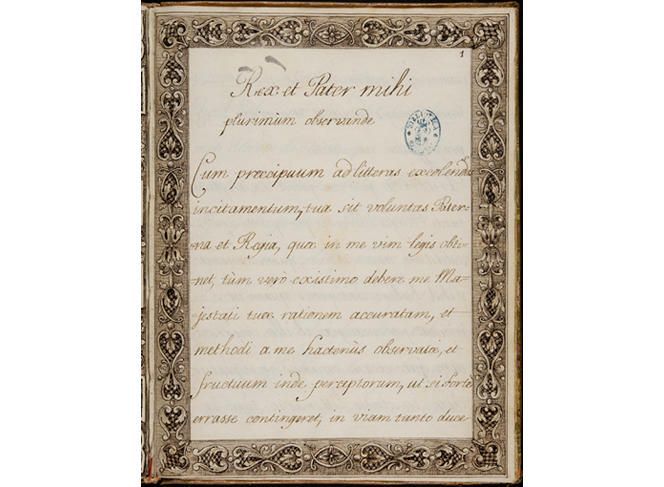 1
Rex et Pater mihi
plurimùm observande
Cum præcipuum ad litteras excolendas
incitamentum, tua sit voluntas Pater-
na et Regia, quæ in me vim legis obti-
net, tùm verò existimo debere me Ma-
jestati tuæ rationem accuratam, et
methodi a me hactenùs observatæ, et
fructuum inde perceptorum, ut si fortè
errasse contingeret, in viam tanto duce